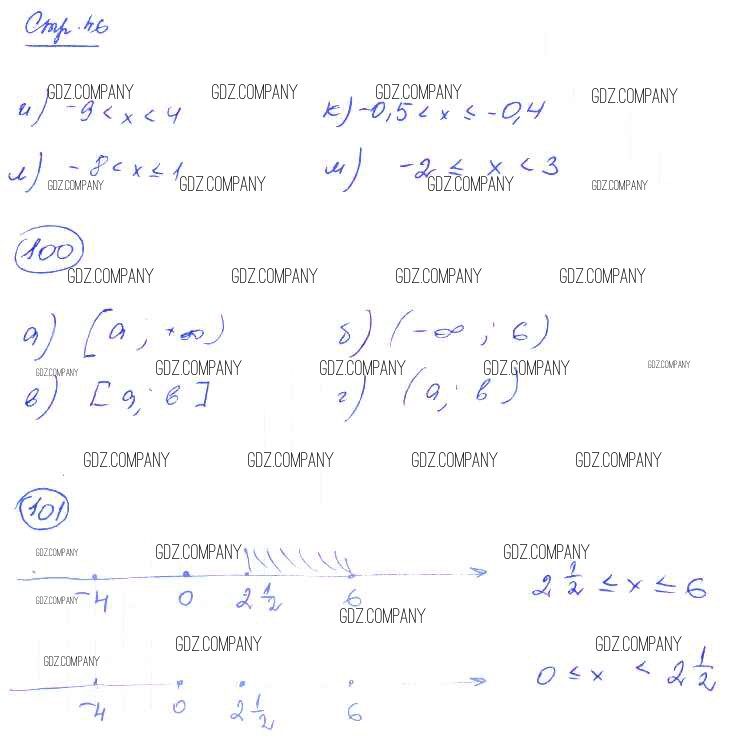 Стр. 46
GDZ.COMPANY GDZ.COMPANY GDZ.COMPANY GDZ.COMPANY
и) -9 < x < 4 к) -0,5 < x ≤ -0,4
л) -8 < x ≤ 1 м) -2 ≤ x < 3
GDZ.COMPANY GDZ.COMPANY GDZ.COMPANY GDZ.COMPANY
100
GDZ.COMPANY GDZ.COMPANY GDZ.COMPANY GDZ.COMPANY
а) [a; +∞) б) (-∞; б)
GDZ.COMPANY GDZ.COMPANY GDZ.COMPANY GDZ.COMPANY
в) [a; в] г) (a; в)
GDZ.COMPANY GDZ.COMPANY GDZ.COMPANY GDZ.COMPANY
101
GDZ.COMPANY GDZ.COMPANY GDZ.COMPANY
-4 0 2 1/2 6 2 1/2 ≤ x ≤ 6
GDZ.COMPANY GDZ.COMPANY
GDZ.COMPANY GDZ.COMPANY GDZ.COMPANY
-4 0 2 1/2 6 0 ≤ x < 2 1/2